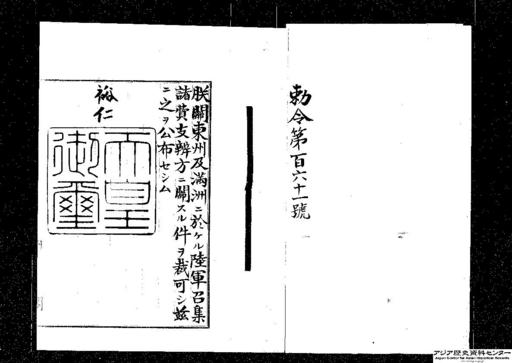 勅令第百六十一號
朕關東州及滿洲ニ於ケル陸軍召集
諸費支辨方ニ關スル件ヲ裁可シ茲
ニ之ヲ公布セシム
裕仁
天皇
御璽
アジア歴史資料センター
Japan Center for Asian Historical Records